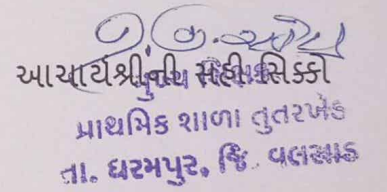 આચાર્યશ્રીની સહી સિક્કો
મુખ્ય શિક્ષક
પ્રાથમિક શાળા તુતરખેડ
તા. ધરમપુર, જિ. વલસાડ